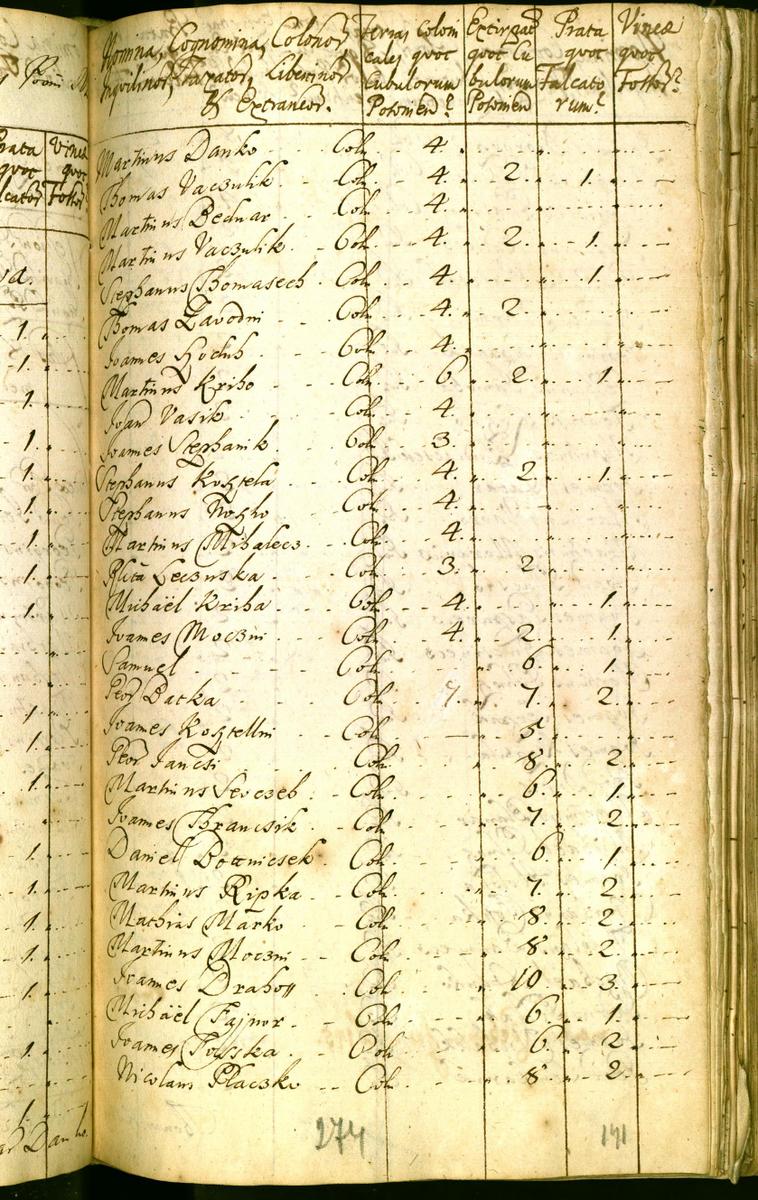 Nomina, Cognomina, Colonor,
Inquilinor, Taxator, Libertinor
& Extraneor.
Terras Coloni
cales quot
Cubulorum
Posonien?
Extirpat
quot Cu
bulorum
Posonien
Prata
quot
Falcato
rum?
Vineæ
quot
Fossor?
Martinus Danko Col. 4.
Thomas Vaczulik Col. 4. 2. 1.
Martinus Bednar Col. 4.
Martinus Vaczulik Col. 4. 2. 1.
Stephanus Thomasech Col. 4. 1.
Thomas Zavodni Col. 4. 2.
Joannes Col. 4.
Martinus Kriho Col. 6. 2. 1.
Joan Vasik Col. 4.
Joannes Stephanik Col. 3.
Stephanus Kosztela Col. 4. 2. 1.
Stephanus Col. 4.
Martinus Mihalecz Col. 4.
Leczuska Col. 3. 2.
Michäel Kriha Col. 4. 1.
Joannes Moczni Col. 4. 2. 1.
Samuel Col. 6. 1.
Petr Batka Col. 7. 7. 2.
Joannes Kosztelni Col. 5.
Petr Jancsi Col. 8. 2.
Martinus Sevczeh Col. 6. 1.
Joannes Hrancsik Col. 7. 2.
Daniel Col. 6. 1.
Martinus Ripka Col. 7. 2.
Mathias Marko Col. 8. 2.
Martinus Moczni Col. 8. 2.
Joannes Drahoss Col. 10. 3.
Michäel Fajnor Col. 6. 1.
Joannes Col. 6. 2.
Nicolaus Placzko Col. 8. 2.
274
141